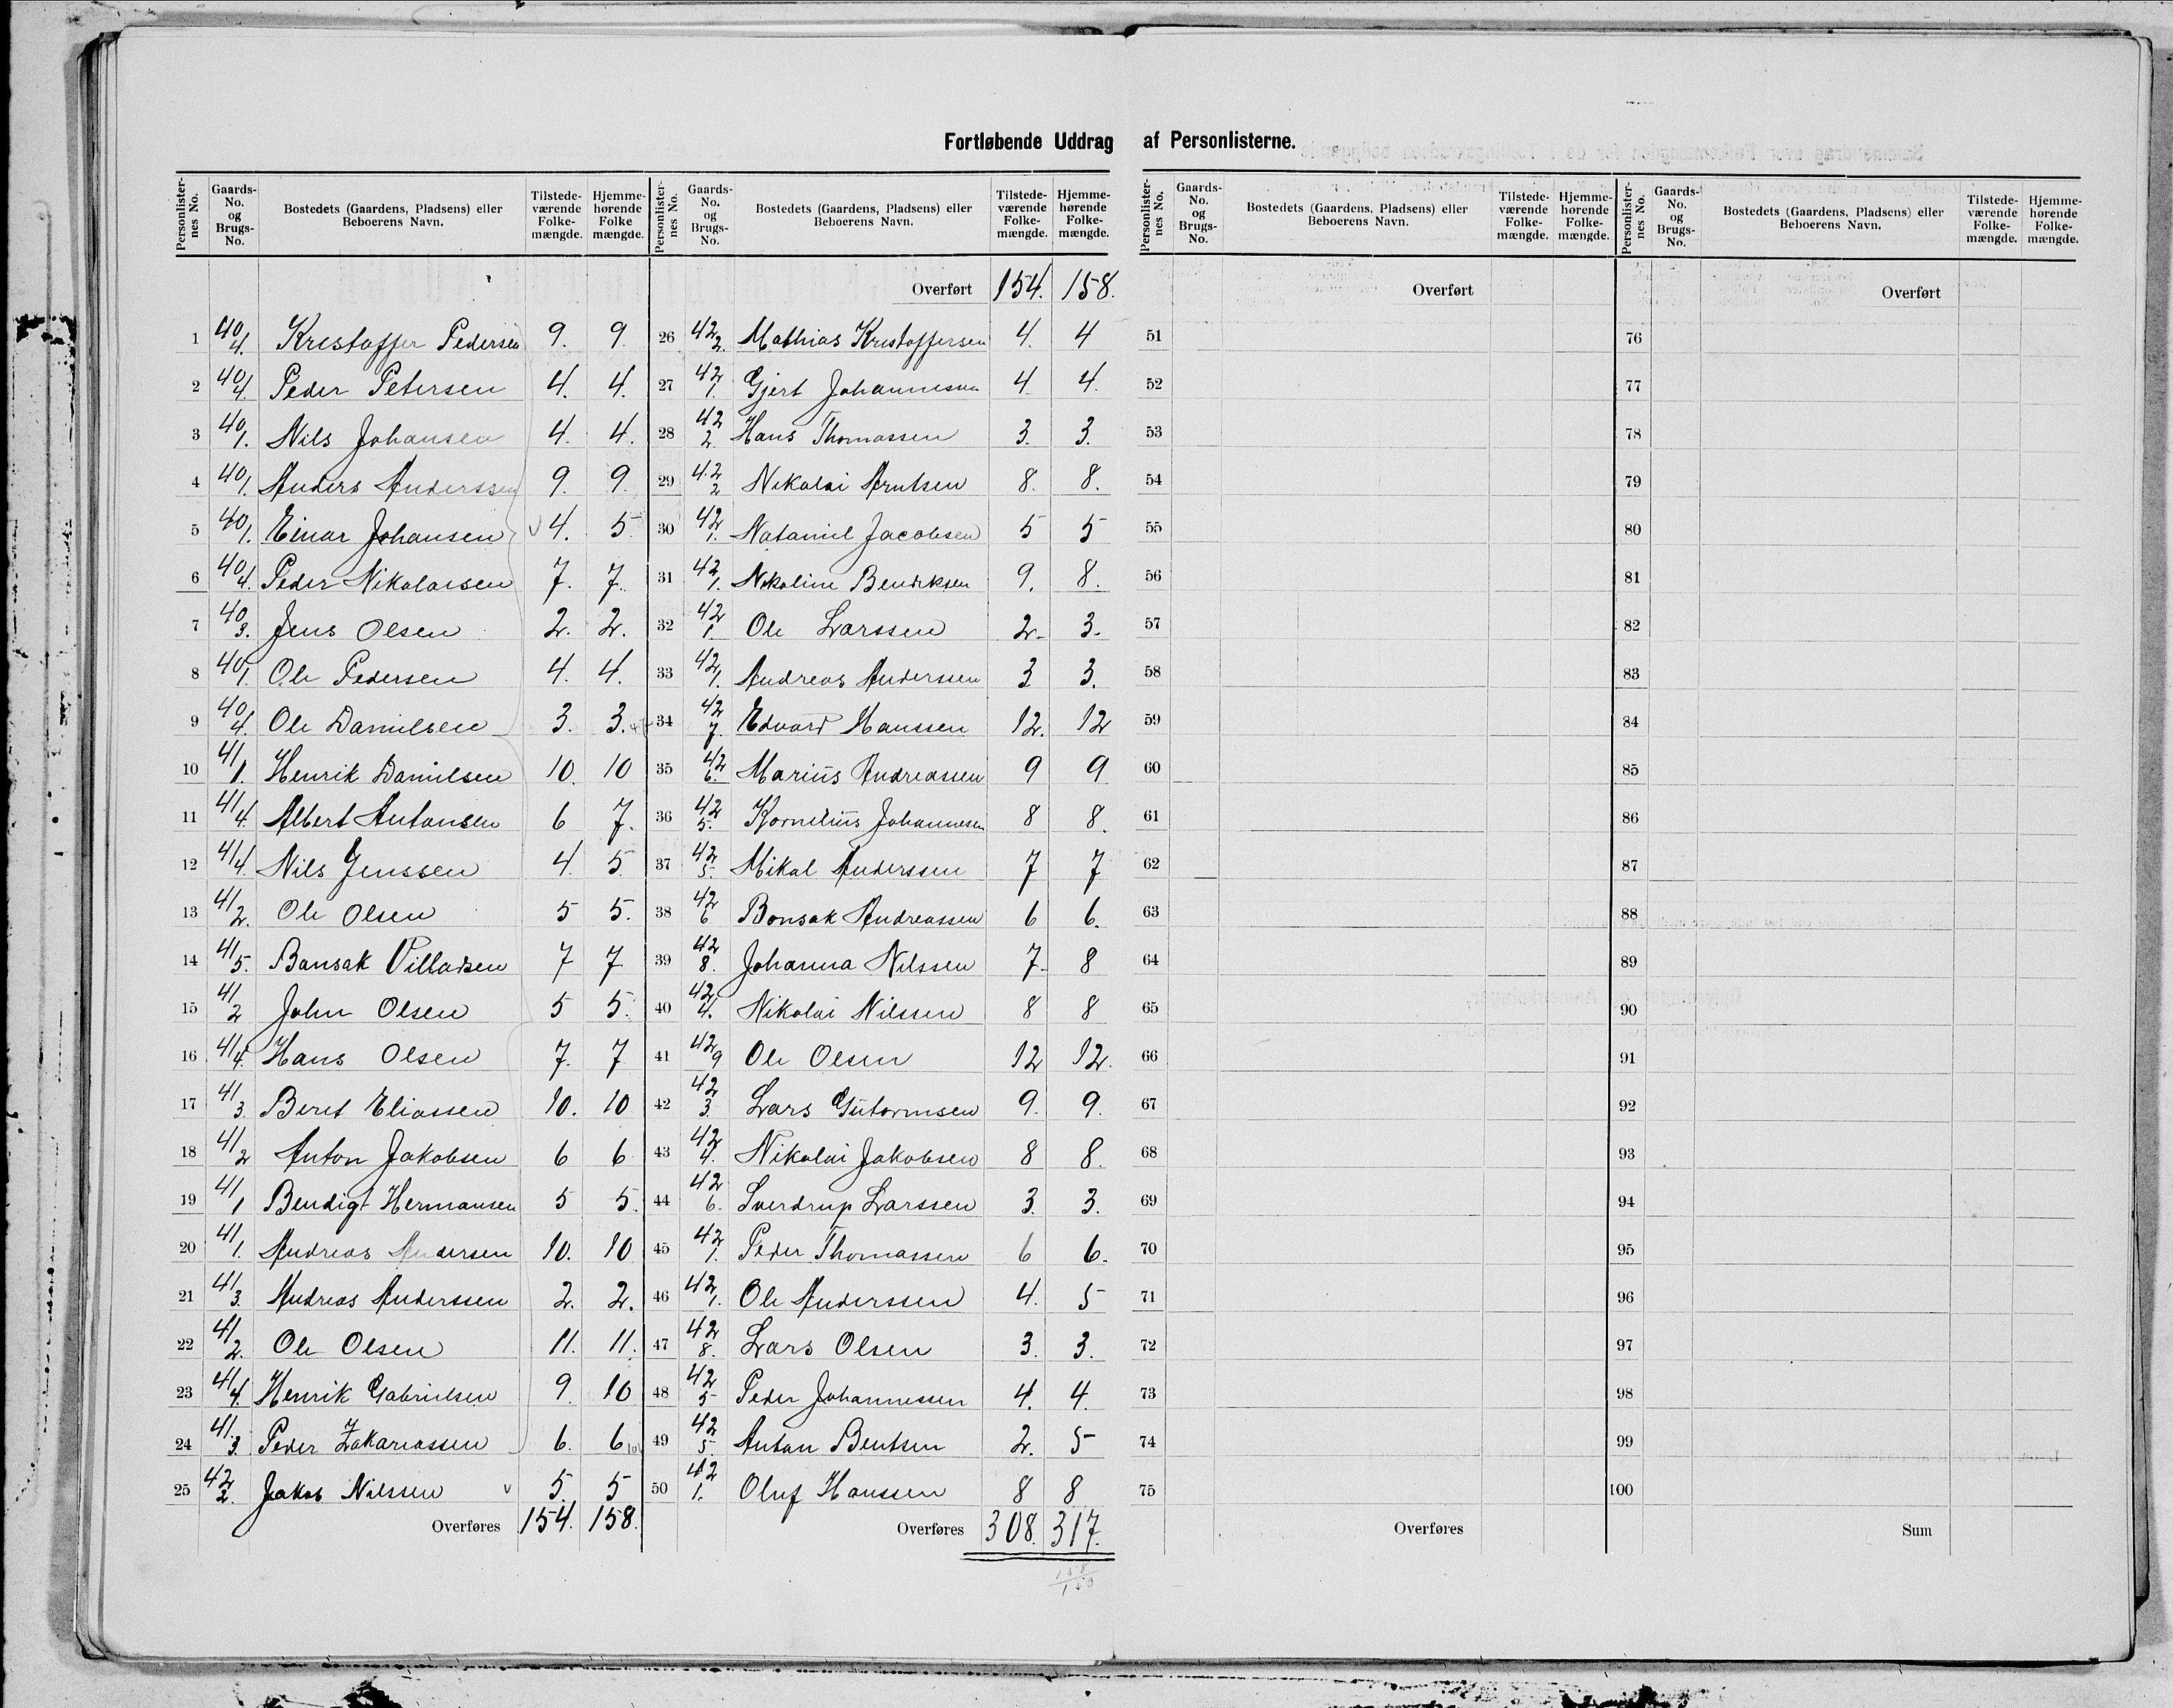 Fortløbende Uddrag af Personlisterne.
Personlister-nes No. | Gaards-No. og Brugs-No. | Bostedets (Gaardens, Pladsens) eller Beboerens Navn. | Tilstede-værende Folke-mængde. | Hjemme-hørende Folke mængde.
1 40/4. Kristoffer Pedersen 9. 9
2 40/4. Peder Petersen 4. 4.
3 40/1. Nils Johansen 4. 4.
4 40/1. Anders Anderssen 9. 9.
5 40/1. Einar Johansen 4. 5
6 40/4. Peder Nikolaisen 7. 7.
7 40/3. Jens Olsen 2. 2.
8 40/1. Ole Pedersen 4. 4.
9 40/4. Ole Danielsen 3. 3.
10 41/1. Henrik Danielsen 10. 10
11 41/4. Albert Antonsen 6 7.
12 41/4. Nils Jenssen 4. 5
13 41/2. Ole Olsen 5 5.
14 41/5. Bansak Villadsen 7 7
15 41/2 John Olsen 5 5.
16 41/4. Hans Olsen 7. 7
17 41/3. Berit Eliassen 10. 10
18 41/2 Anton Jakobsen 6 6
19 41/1 Bendigt Hermansen 5 5.
20 41/1. Andreas Andersen 10. 10
21 41/3. Andreas Anderssen 2. 2.
22 41/2. Ole Olsen 11. 11.
23 41/4. Henrik Gabrielsen 9. 10
24 41/3. Peder Zakariassen 6. 6
25 42/2. Jakob Nilssen v 5. 5
Overføres 154. 158.
Personlister-nes No. | Gaards-No. og Brugs-No. | Bostedets (Gaardens, Pladsens) eller Beboerens Navn. | Tilstede-værende Folke-mængde. | Hjemme-hørende Folke-mængde.
Overført 154. 158.
26 42/2. Mathias Kristoffersen 4. 4
27 42/1. Gjert Johannesen 4 4.
28 42/2. Hans Thomassen 3. 3.
29 42/2 Nikolai Arntsen 8. 8.
30 42/1. Natamil Jacobsen 5 5
31 42/1. Nikoline Bendiksen 9. 8.
32 42/1. Ole Larssen 2. 3.
33 42/1. Andreas Anderssen 3 3.
34 42/7. Edvard Hanssen 12. 12
35 42/6. Marius Andreassen 9 9
36 42/5. Kornelius Johannesen 8 8.
37 42/5. Mikal Anderssen 7 7
38 42/6. Bonsak Andreassen 6 6.
39 42/8. Johanna Nilssen 7. 8
40 42/4. Nikolai Nilssen 8 8
41 42/9 Ole Olsen 12 12.
42 42/3. Lars Gutormsen 9. 9.
43 42/4. Nikolai Jakobsen 8 8.
44 42/6. Sverdrup Larssen 3. 3.
45 42/1. Peder Thomassen 6 6.
46 42/1. Ole Anderssen 4. 5
47 42/8. Lars Olsen 3. 3.
48 42/5 Peder Johannessen 4. 4.
49 42/5. Anton Bentsen 2. 5
50 42/1. Oluf Hanssen 8 8
Overføres 308. 317.
Personlister-nes No. | Gaards-No. og Brugs-No. | Bostedets (Gaardens, Pladsens) eller Beboerens Navn. | Tilstede-værende Folke-mængde. | Hjemme-hørende Folke-mængde.
Overført
51
52
53
54
55
56
57
58
59
60
61
62
63
64
65
66
67
68
69
70
71
72
73
74
75
Overføres
Personlister-nes No. | Gaards-No. og Brugs-No. | Bostedets (Gaardens, Pladsens) eller Beboerens Navn. | Tilstede-værende Folke-mængde. | Hjemme-hørende Folke-mængde.
Overført
76
77
78
79
80
81
82
83
84
85
86
87
88
89
90
91
92
93
94
95
96
97
98
99
100
Sum